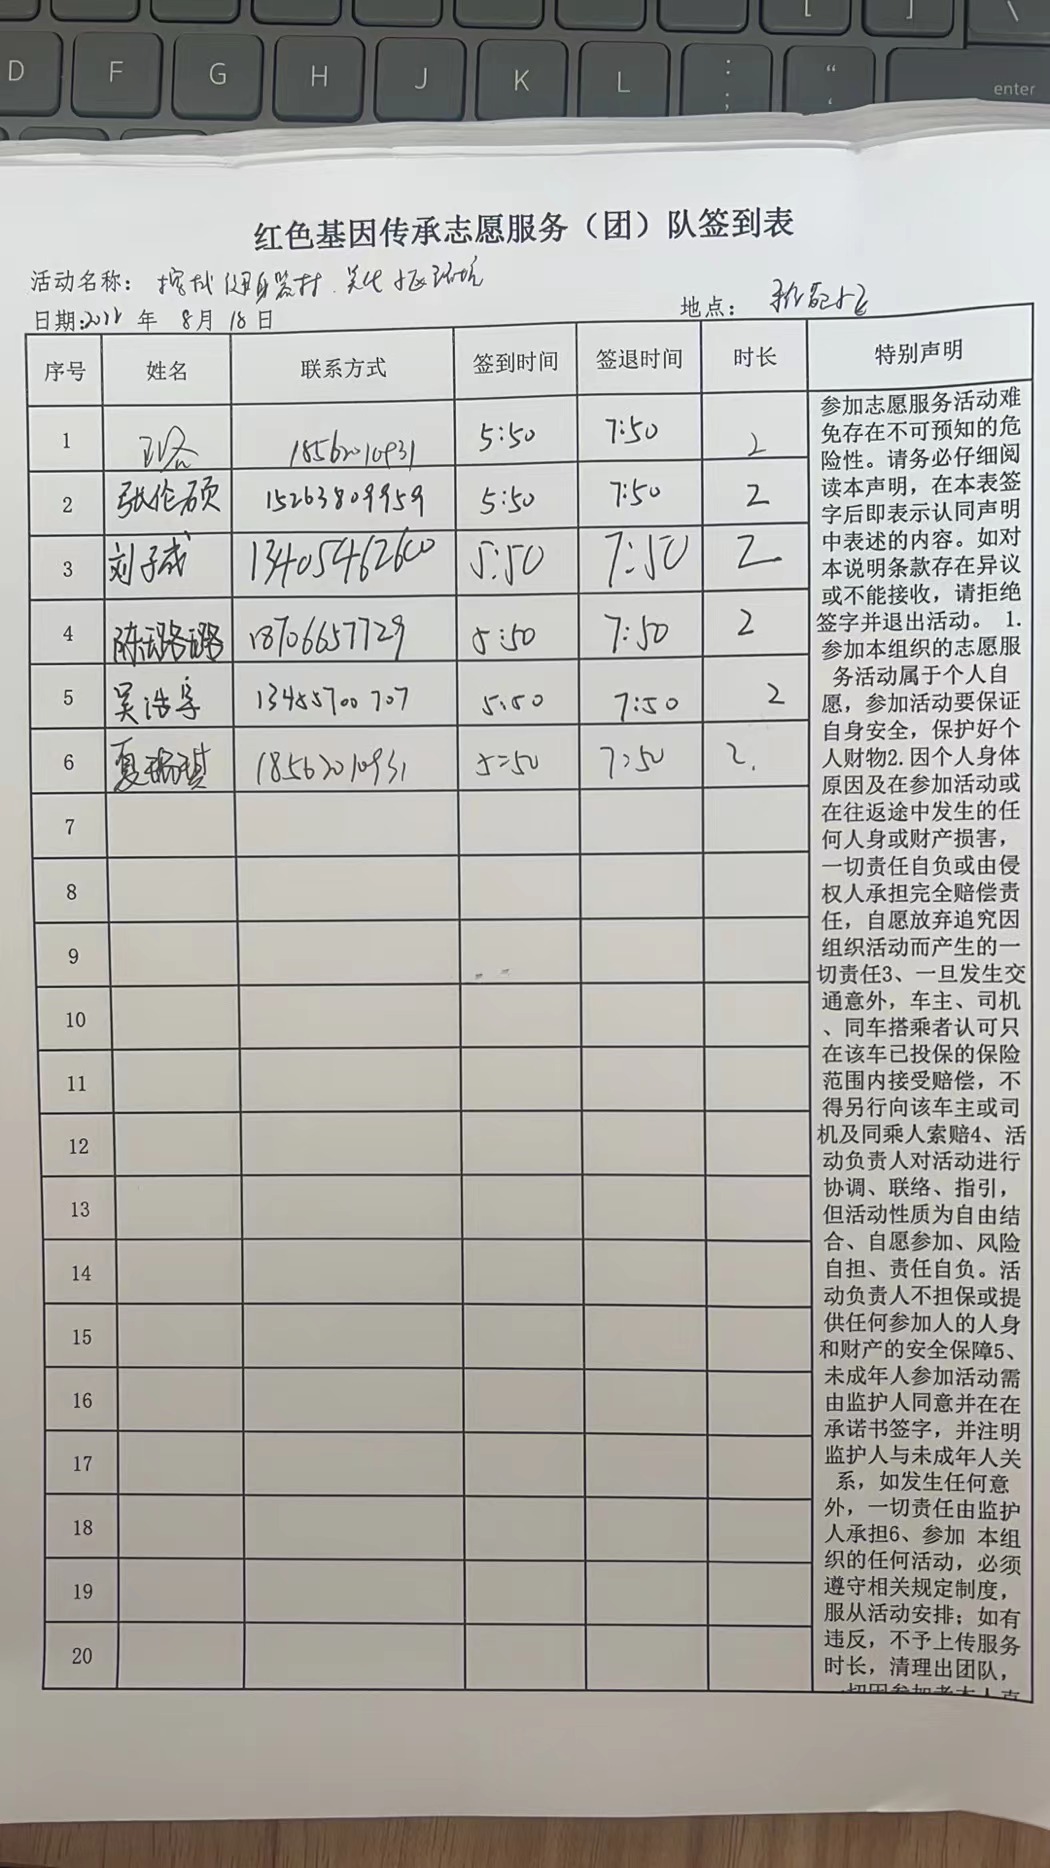 D F G H J K L : ; “ ‘ enter
[ ] \
红色基因传承志愿服务（团）队签到表
活动名称： 擦拭健身器材.美化社区环境
日期:2022 年 8月 18 日 地点：
序号 姓名 联系方式 签到时间 签退时间 时长 特别声明
1 18562010931 5:50 7:50 2
2 张伦硕 15263809959 5:50 7:50 2
3 刘子成 13405462600 5:50 7:50 2
4 陈璐璐 18706657729 5:50 7:50 2
5 吴浩宇 13455700707 5:50 7:50 2
6 夏瑞琪 18562010931 5:50 7:50 2.
7
8
9
10
11
12
13
14
15
16
17
18
19
20
参加志愿服务活动难
免存在不可预知的危
险性。请务必仔细阅
读本声明，在本表签
字后即表示认同声明
中表述的内容。如对
本说明条款存在异议
或不能接收，请拒绝
签字并退出活动。 1.
参加本组织的志愿服
务活动属于个人自
愿，参加活动要保证
自身安全，保护好个
人财物2.因个人身体
原因及在参加活动或
在往返途中发生的任
何人身或财产损害，
一切责任自负或由侵
权人承担完全赔偿责
任，自愿放弃追究因
组织活动而产生的一
切责任3、一旦发生交
通意外，车主、司机
、同车搭乘者认可只
在该车已投保的保险
范围内接受赔偿，不
得另行向该车主或司
机及同乘人索赔4、活
动负责人对活动进行
协调、联络、指引，
但活动性质为自由结
合、自愿参加、风险
自担、责任自负。活
动负责人不担保或提
供任何参加人的人身
和财产的安全保障5、
未成年人参加活动需
由监护人同意并在在
承诺书签字，并注明
监护人与未成年人关
系，如发生任何意
外，一切责任由监护
人承担6、参加 本组
织的任何活动，必须
遵守相关规定制度，
服从活动安排；如有
违反，不予上传服务
时长，清理出团队，